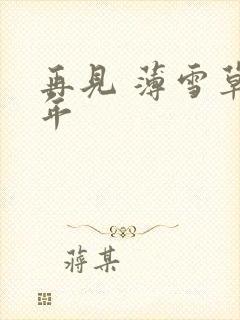 再见 薄雪草
年
蒋某